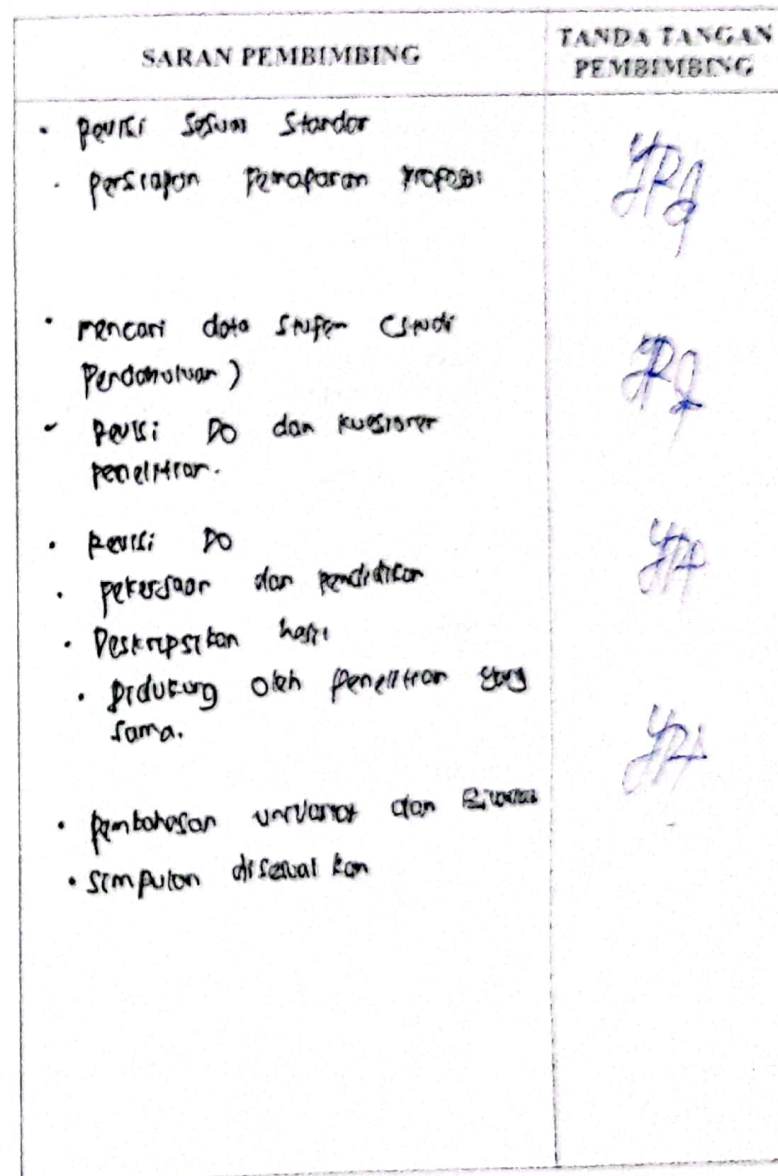 SARAN PEMBIMBING
TANDA TANGAN
PEMBIMBING
• Revisi sesuai standar
• Persiapan Pemaparan Proposal
• mencari data stupen (studi
Pendahuluan)
• Revisi DO dan kuesioner
penelitian.
• Revisi DO
• pekerjaan dan pendidikan
• Deskripsikan hasil
• Didukung oleh penelitian yang
sama.
• Pembahasan univariat dan Bivariat
• simpulan disesuaikan